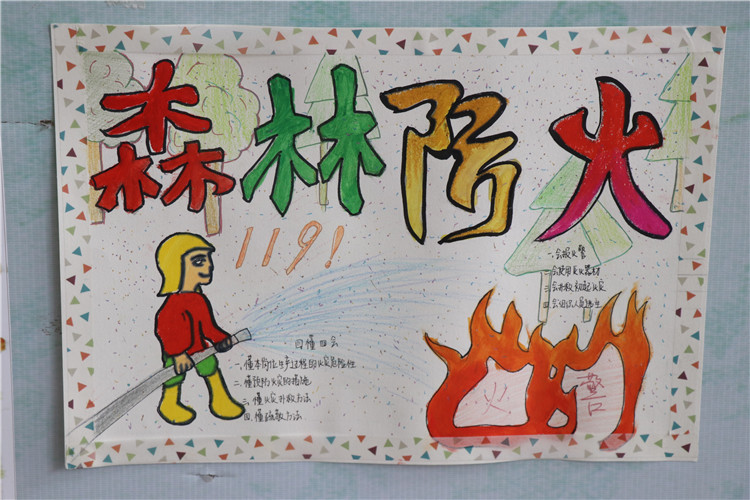 森林防火
119!
一.会报火警
二.会使用灭火器材
三.会扑救初起火灾
四.会组织人员逃生
四懂四会
一.懂本岗位生产过程的火灾危险性
二.懂预防火灾的措施
三.懂火灾扑救方法
四.懂疏散方法
火警